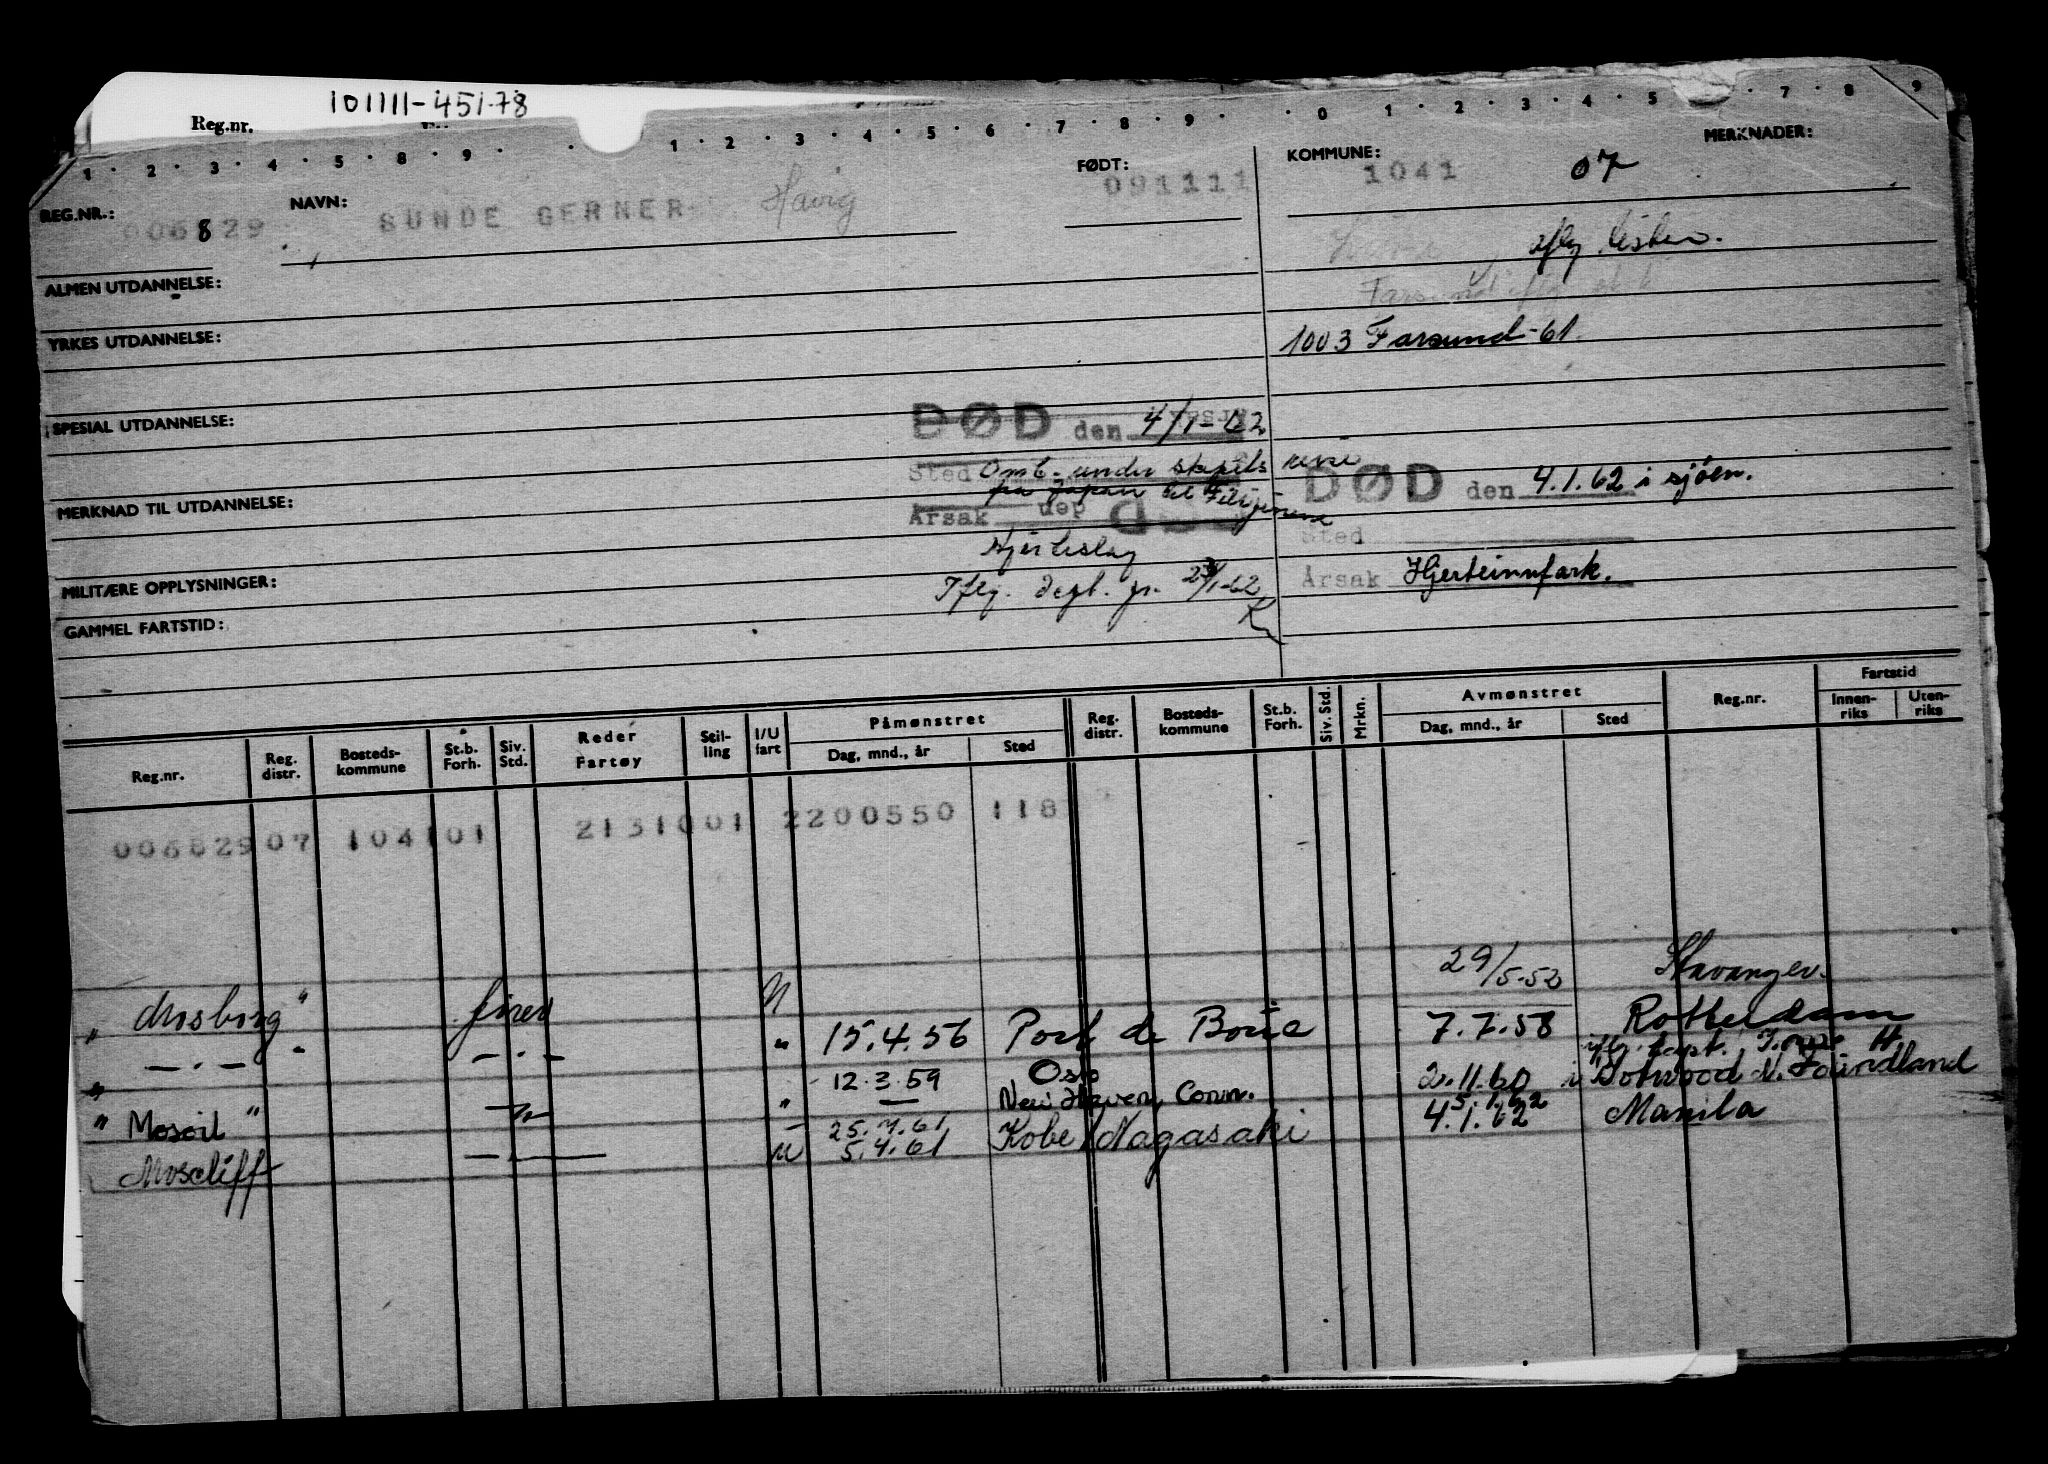 101111-451-78
Reg.nr.
1 · 2 · 3 · 4 · 5 · 8 · 9 · · 1 · 2 · 3 · 4 · 5 · 6 · 7 · 8 · 9 · · 0 · 1 · 2 · 3 · 4 · 5 · 7 · 8 · 9
REG.NR.: 006829 NAVN: SUNDE GERNER Håvig FØDT: 091111 KOMMUNE: 1041 07 MERKNADER:
Lista.
ALMEN UTDANNELSE:
Farsund
YRKES UTDANNELSE:
1003 Farsund-61.
SPESIAL UTDANNELSE:
DØD den 4/1-62
Sted Omb. under skipets reise
på Japan til Filippinene
DØD den 4.1.62 i sjøen.
MERKNAD TIL UTDANNELSE:
Årsak
Sted
Hjerteslag
MILITÆRE OPPLYSNINGER:
Iflg. degt. pr. 23/1-62
Årsak Hjerteinnfark.
GAMMEL FARTSTID:
Reg.nr. Reg. distr. Bosteds-kommune St.b. Forh. Siv. Std. Reder Fartøy Stil-ling I/U fart Påmønstret Dag, mnd., år Sted Reg. distr. Bosteds-kommune St.b. Forh. Siv. Std. Mrkn. Avmønstret Dag, mnd., år Sted Reg.nr. Fartstid Innen-riks Uten-riks
006829 07 104101 2131001 2200550 118
"Mosborg" fører U 29/5-52 Stavanger.
" — . — " — . — " 15.4.56 Port de Bouc 7.7.58 Rotterdam
" 12.3.59 Oslo 2.11.60 i Botwood N. Foundland
"Mosoil" " — New Haven, Conn.
Moscliff — U 5.4.61 Kobe/Nagasaki 4.1.62 Manila